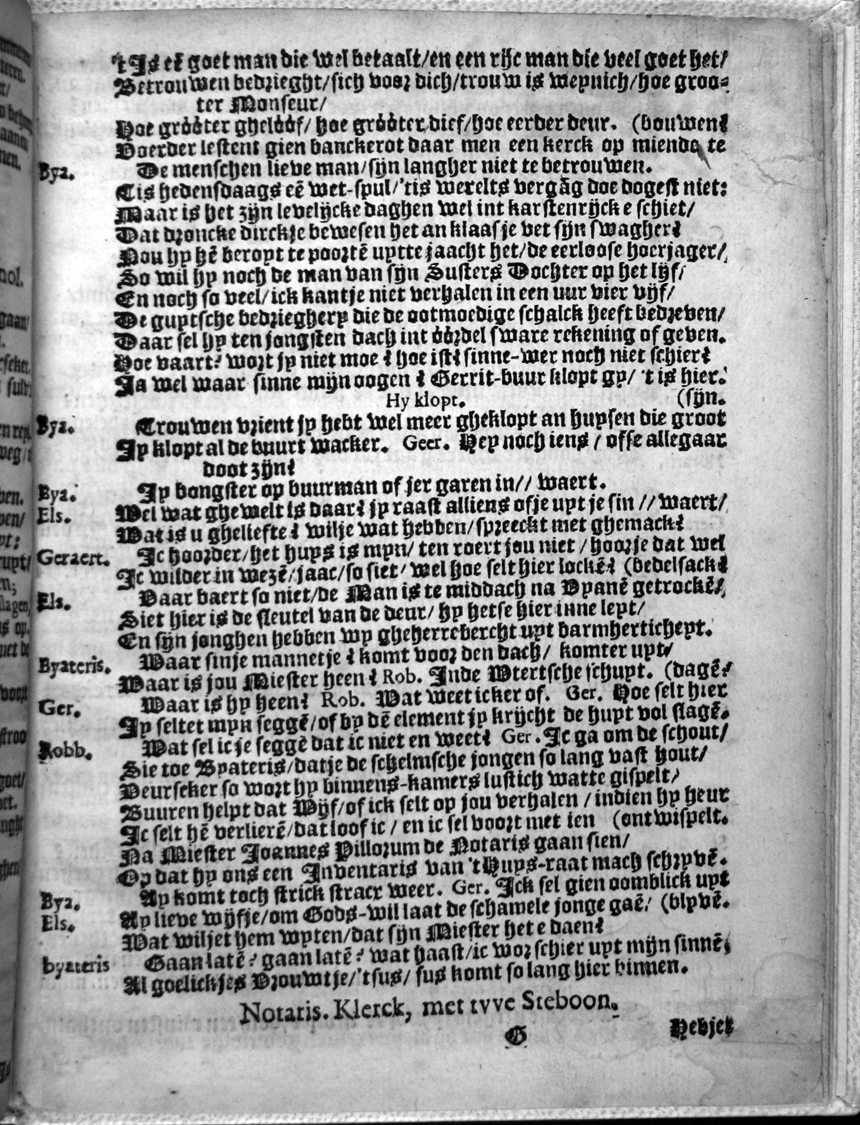 'tIs eē goet man die wel betaalt/en een rijc man die veel goet het/
Betrouwen bedrieght/sich voor dich/trouw is weynich/hoe groo-
ter Monseur/
Hoe gróóter ghelóóf/ hoe gróóter dief/hoe eerder deur. (bouwen?
Voerder lestent gien banckerot daar men een kerck op miende te
Bya. De menschen lieve man/sijn langher niet te betrouwen.
Tis hedensdaags eē wet-spul/'tis werelts vergāg doe dogest niet:
Maar is het zijn levelijcke daghen wel int karstenrijck e schiet/
Dat droncke dirckje bewesen het an klaasje vet sijn swagher?
Nou hy hē beropt te poortē uptte jaacht het/de eerloose hoerjager/
So wil hy noch de man van sijn Susters Dochter op het lijf/
En noch so veel/ick kantje niet verhalen in een uur vier vijf/
De guytsche bedrieghery die de ootmoedige schalck heeft bedreven/
Daar sel hy ten jongsten dach int óórdel sware rekening of geven.
Hoe vaart? wort jy niet moe? hoe ist? sinne-wer noch niet schier?
Ja wel waar sinne mijn oogen? Gerrit-buur klopt gy/ 't is hier.
Hy klopt. (sijn.
Bya. Trouwen vrient jy hebt wel meer gheklopt an huysen die groot
Jy klopt al de buurt wacker. Geer. Hey noch iens / offe allegaar
doot zijn?
Bya. Jy bongster op buurman of jer garen in// waert.
Els. Wel wat ghewelt is daar? jy raast alliens ofje uyt je sin // waert/
Wat is u gheliefte? wilje wat hebben/spreeckt met ghemack?
Geraert. Ic hoorder/het huys is myn/ ten roert jou niet /hoorje dat wel
Ic wilder in wezē/jaac/so siet/ wel hoe selt hier lockē? (bedelsack?
Els. Daar baert so niet/de Man is te middach na Vyanē getrockē/
Siet hier is de sleutel van de deur/ hy hetse hier inne leyt/
En sijn jonghen hebben wy gheherrebercht uyt barmhertichept.
Byateris. Waar sinje mannetje? komt voor den dach/ komter uyt/
Waar is jou Miester heen? Rob. Inde Wtertsche schuyt. (dagē?
Ger. Waar is hy heen? Rob. Wat weet icker of. Ger. Hoe selt hier
Jy seltet myn seggē/of by dē element jy krijcht de huyt vol slagē.
Robb. Wat sel ic je seggē dat ic niet en weet? Ger. Ic ga om de schout/
Sie toe Byateris/datje de schelmsche jongen so lang vast hout/
Deurseker so wort hy binnens-kamers lustich watte gispelt/
Buuren helpt dat Wijf/of ick selt op jou verhalen / indien hy heur
Ic selt hē verlierē/dat loof ic / en ic sel voort met ien (ontwispelt.
Na Miester Joannes Pillorum de Notaris gaan sien/
Op dat hy ons een Inventaris van 't Huys-raat mach schryvē.
Bya. Ay komt toch strick stracx weer. Ger. Ick sel gien oomblick uyt
Els. Ay lieve wijfje/om Gods-wil laat de schamele jonge gaē/ (blyvē.
Wat wiljet hem wyten/dat sijn Miester het e daen?
byateris Gaan latē? gaan latē? wat haast/ic wor schier uyt mijn sinnē;
Al goelickjes Vrouwtje/'tsus/ sus komt so lang hier binnen.
Notaris. Klerck, met tvve Steboon.
G
Hebjet